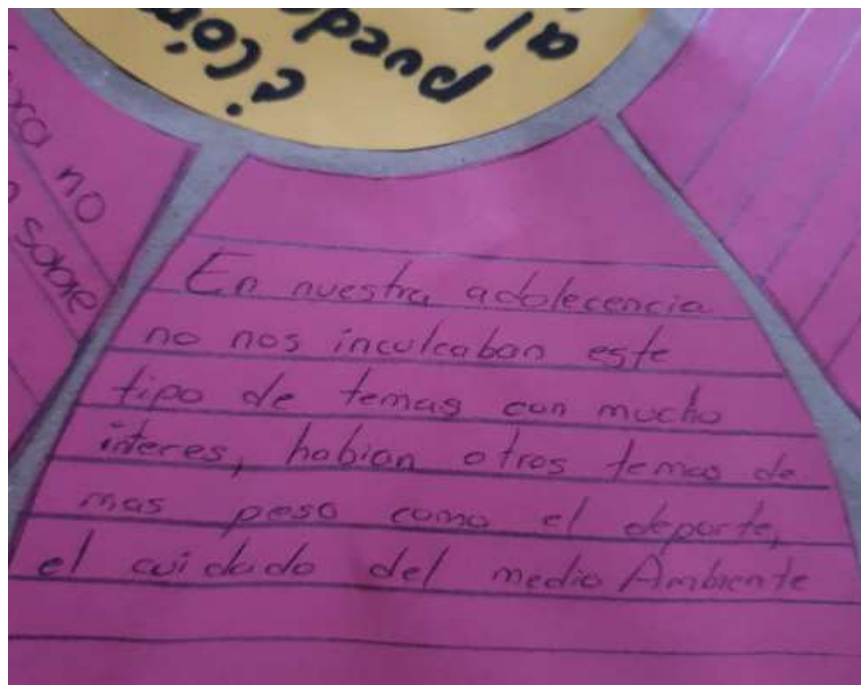 ¿Cóm
pued
al
xa no
sobre
En nuestra adolecencia
no nos inculcaban este
tipo de temas con mucho
interes, habian otros temas de
mas peso como el deporte,
el cuidado del medio Ambiente